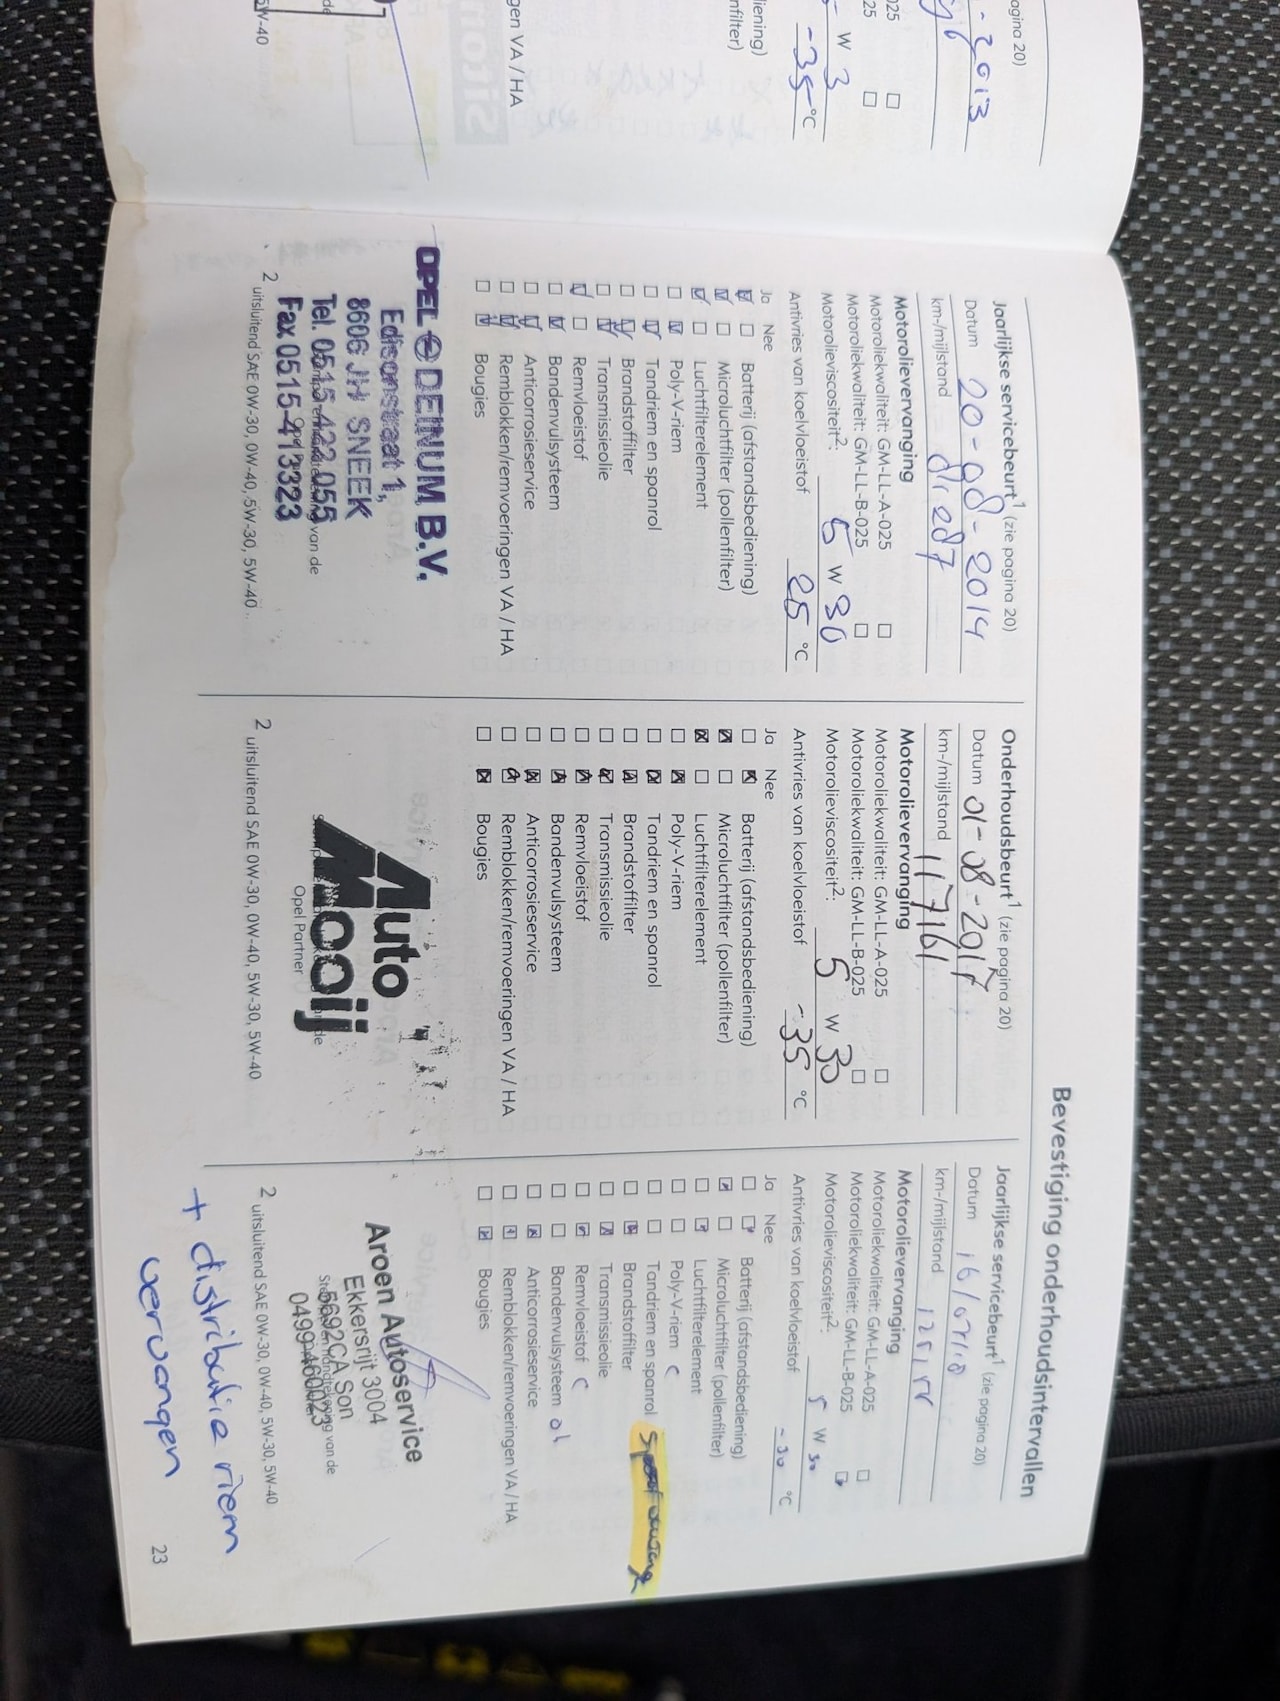 agina 20)
- 2013
025
25
W 3
-35 °C
liening)
nfilter)
gen VA / HA
5W-40
Bevestiging onderhoudsintervallen
Jaarlijkse servicebeurt¹ (zie pagina 20)
Datum 20-08-2014
km-/mijlstand
Motorolievervanging
Motoroliekwaliteit: GM-LL-A-025 ☐
Motoroliekwaliteit: GM-LL-B-025 ☐
Motorolieviscositeit²: 5 W 30
Antivries van koelvloeistof 25 °C
Ja Nee
Batterij (afstandsbediening)
Microluchtfilter (pollenfilter)
Luchtfilterelement
Poly-V-riem
Tandriem en spanrol
Brandstoffilter
Transmissieolie
Remvloeistof
Bandenvulsysteem
Anticorrosieservice
Remblokken/remvoeringen VA / HA
Bougies
OPEL DEINUM B.V.
Edisonstraat 1,
8606 JH SNEEK
Tel. 0515-422 055
Fax 0515-413323
² uitsluitend SAE 0W-30, 0W-40, 5W-30, 5W-40
Onderhoudsbeurt¹ (zie pagina 20)
Datum 01-08-2017
km-/mijlstand 117161
Motorolievervanging
Motoroliekwaliteit: GM-LL-A-025 ☐
Motoroliekwaliteit: GM-LL-B-025 ☐
Motorolieviscositeit²: 5 W 30
Antivries van koelvloeistof -35 °C
Ja Nee
Batterij (afstandsbediening)
Microluchtfilter (pollenfilter)
Luchtfilterelement
Poly-V-riem
Tandriem en spanrol
Brandstoffilter
Transmissieolie
Remvloeistof
Bandenvulsysteem
Anticorrosieservice
Remblokken/remvoeringen VA / HA
Bougies
Auto
Mooij
Opel Partner
² uitsluitend SAE 0W-30, 0W-40, 5W-30, 5W-40
Jaarlijkse servicebeurt¹ (zie pagina 20)
Datum 16/07/18
km-/mijlstand
Motorolievervanging
Motoroliekwaliteit: GM-LL-A-025 ☐
Motoroliekwaliteit: GM-LL-B-025
Motorolieviscositeit²: 5 W 30
Antivries van koelvloeistof -30 °C
Ja Nee
Batterij (afstandsbediening)
Microluchtfilter (pollenfilter)
Luchtfilterelement
Poly-V-riem
Tandriem en spanrol
Brandstoffilter
Transmissieolie
Remvloeistof
Bandenvulsysteem
Anticorrosieservice
Remblokken/remvoeringen VA / HA
Bougies
Aroen Autoservice
Ekkersrijt 3004
5692CA Son
0499-460023
² uitsluitend SAE 0W-30, 0W-40, 5W-30, 5W-40
+ distributie riem
vervangen
23